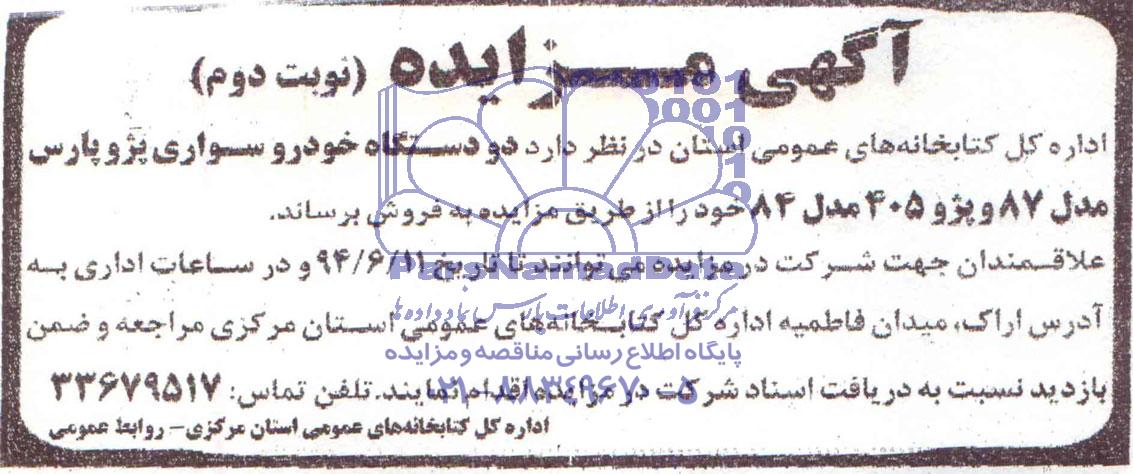 آگهی مـزایده (نوبت دوم)
اداره کل کتابخانه‌های عمومی استان در نظر دارد دو دستگاه خودرو سواری پژو پارس
مدل ۸۷ و پژو ۴۰۵ مدل ۸۴ خود را از طریق مزایده به فروش برساند.
علاقمندان جهت شرکت در مزایده می‌توانند تا تاریخ ۹۴/۶/۱۱ و در ساعات اداری به
ParsNamadData
مرکز فرآوری اطلاعات پارس نماد داده‌ها
آدرس اراک، میدان فاطمیه اداره کل کتابخانه‌های عمومی استان مرکزی مراجعه و ضمن
پایگاه اطلاع رسانی مناقصه و مزایده
بازدید نسبت به دریافت اسناد شرکت در مزایده اقدام نمایند. تلفن تماس: ۳۳۶۷۹۵۱۷
۰۲۱-۸۸۳۴۹۶۷۰-۵
اداره کل کتابخانه‌های عمومی استان مرکزی– روابط عمومی